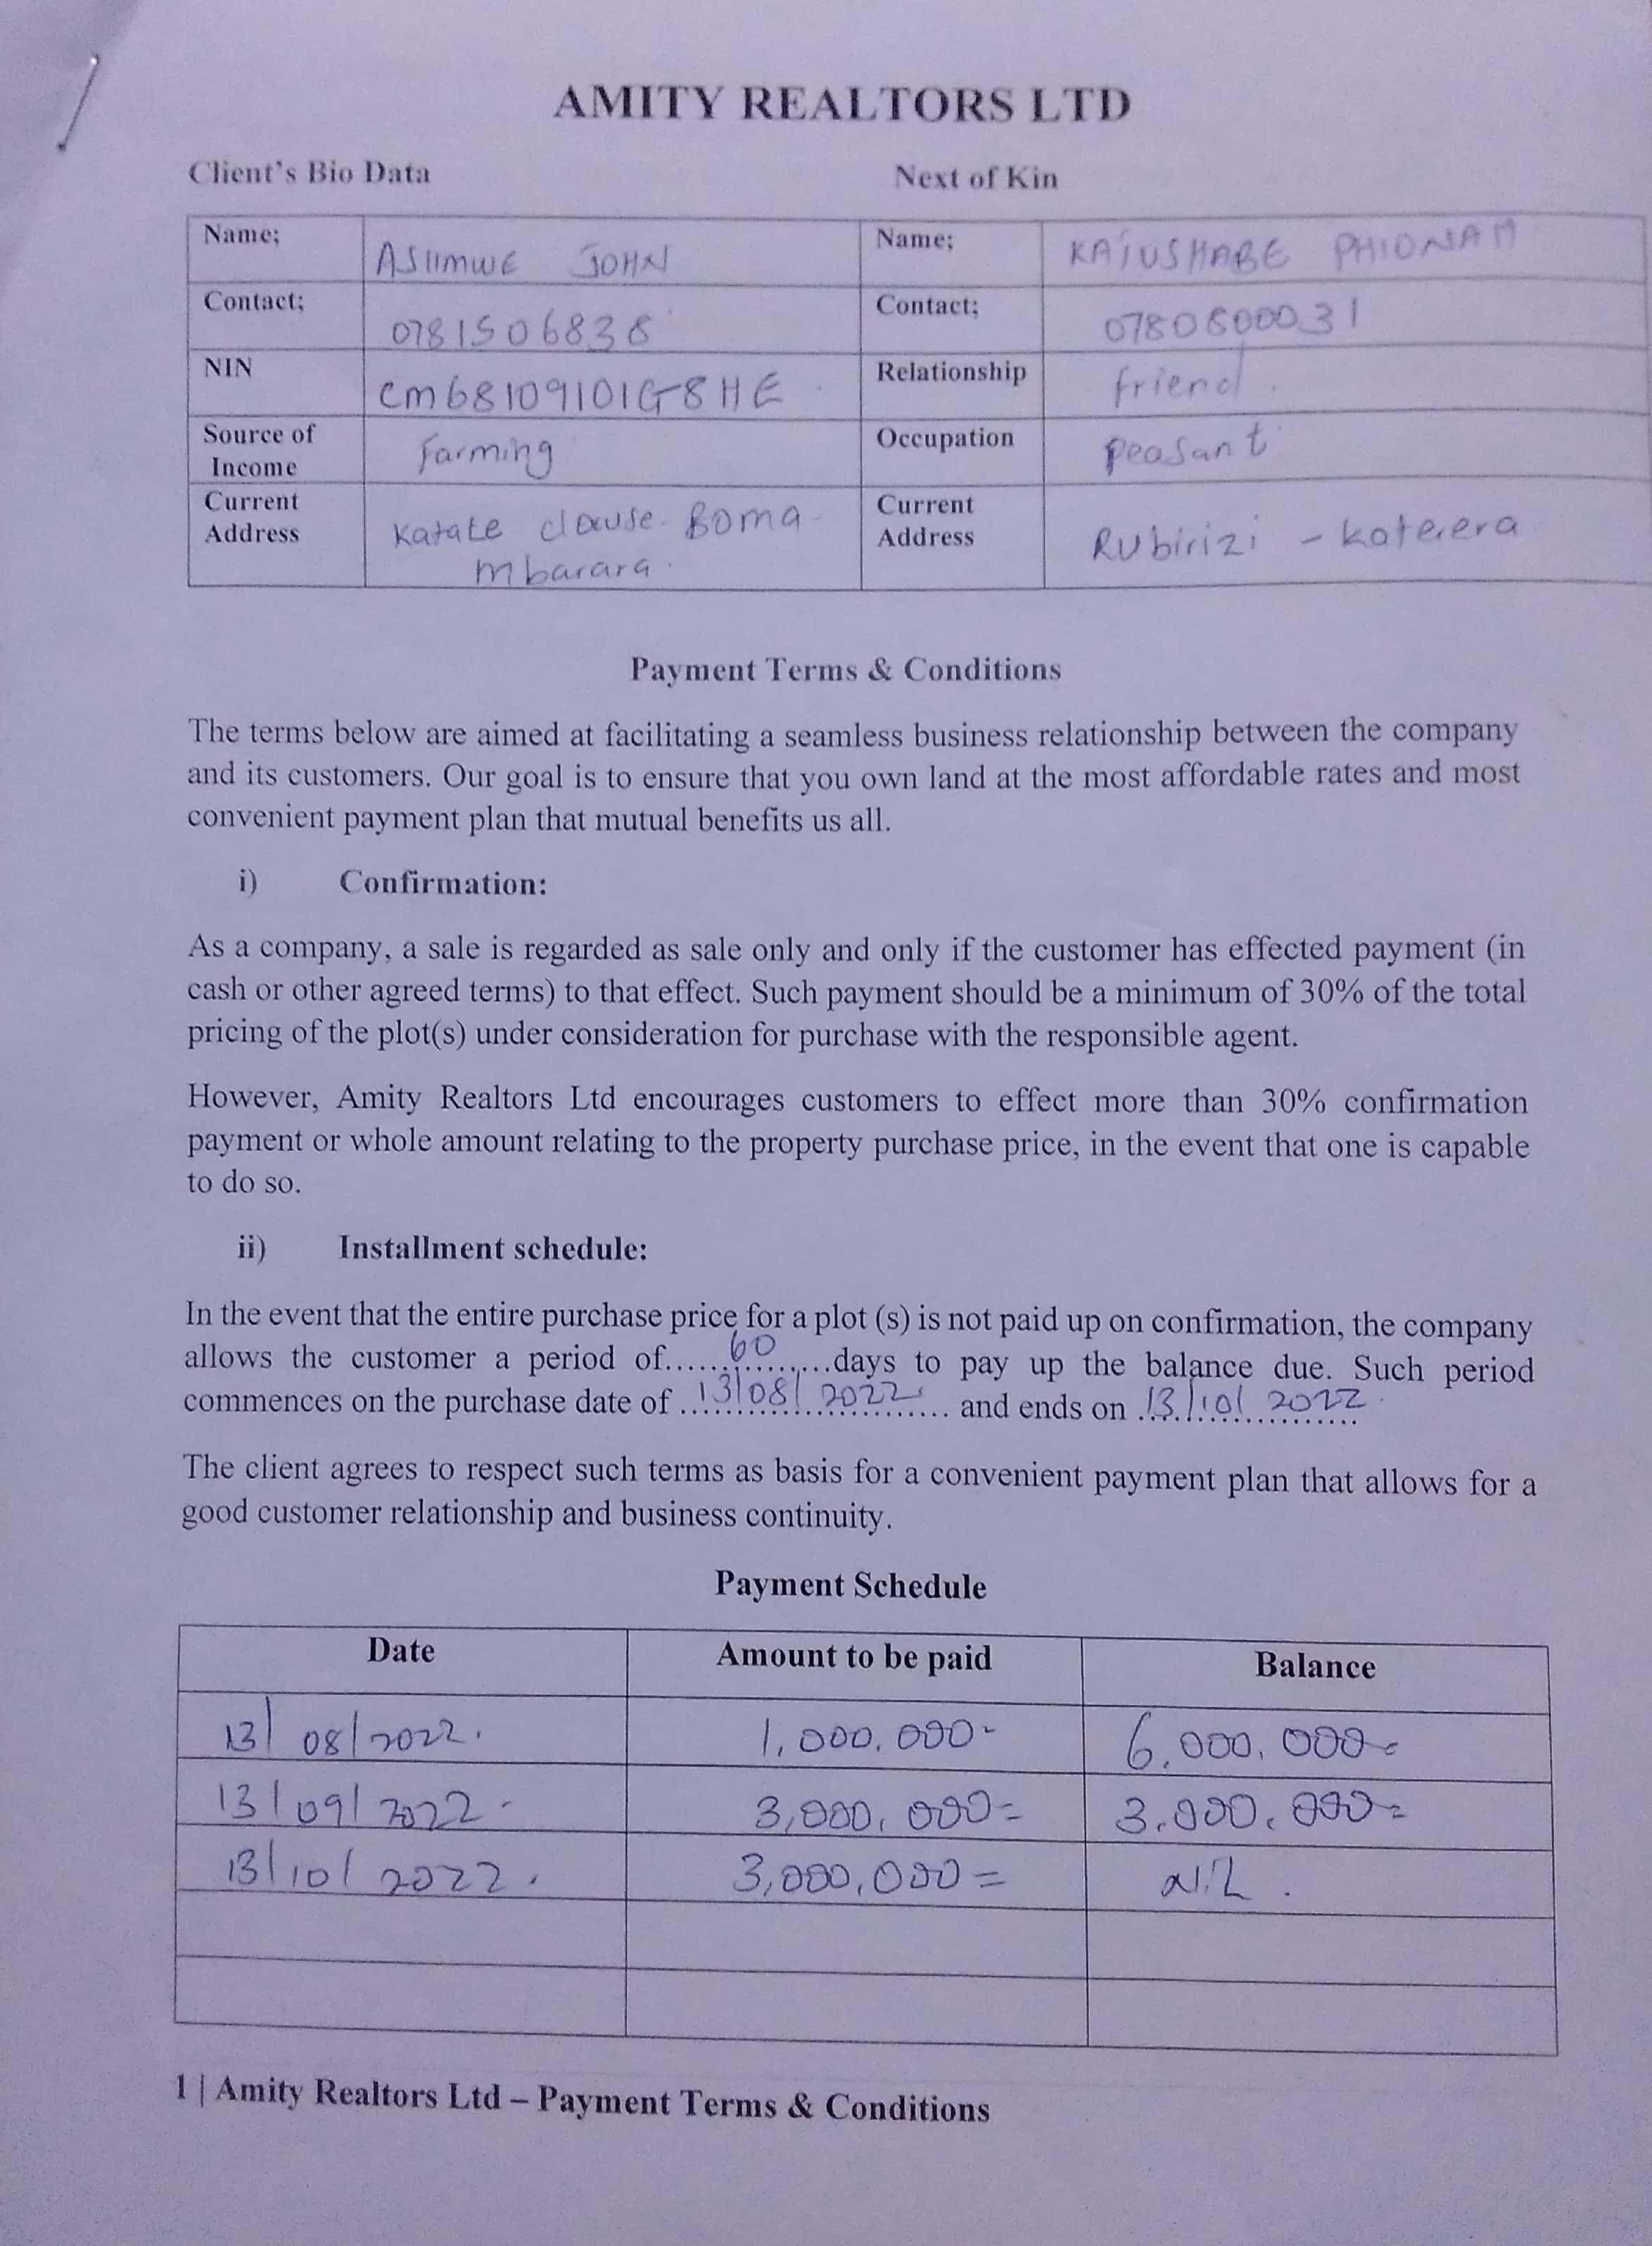 AMITY REALTORS LTD
Client's Bio Data Next of Kin
Name; ASIIMWE JOHN Name; KAIUSHABE PHIONAH
Contact; 0781506838 Contact; 0780800031
NIN CM68109101G8HE Relationship friend.
Source of Income Farming Occupation peasant
Current Address Katate clause. Boma Mbarara. Current Address Rubirizi - katerera
Payment Terms & Conditions
The terms below are aimed at facilitating a seamless business relationship between the company
and its customers. Our goal is to ensure that you own land at the most affordable rates and most
convenient payment plan that mutual benefits us all.
i) Confirmation:
As a company, a sale is regarded as sale only and only if the customer has effected payment (in
cash or other agreed terms) to that effect. Such payment should be a minimum of 30% of the total
pricing of the plot(s) under consideration for purchase with the responsible agent.
However, Amity Realtors Ltd encourages customers to effect more than 30% confirmation
payment or whole amount relating to the property purchase price, in the event that one is capable
to do so.
ii) Installment schedule:
In the event that the entire purchase price for a plot (s) is not paid up on confirmation, the company
allows the customer a period of......60.........days to pay up the balance due. Such period
commences on the purchase date of 13/08/2022. and ends on 13/10/2022.
The client agrees to respect such terms as basis for a convenient payment plan that allows for a
good customer relationship and business continuity.
Payment Schedule
Date Amount to be paid Balance
13/08/2022. 1,000,000- 6,000,000=
13/09/2022- 3,000,000= 3,000,000=
13/10/2022. 3,000,000= Nil.
1 | Amity Realtors Ltd – Payment Terms & Conditions